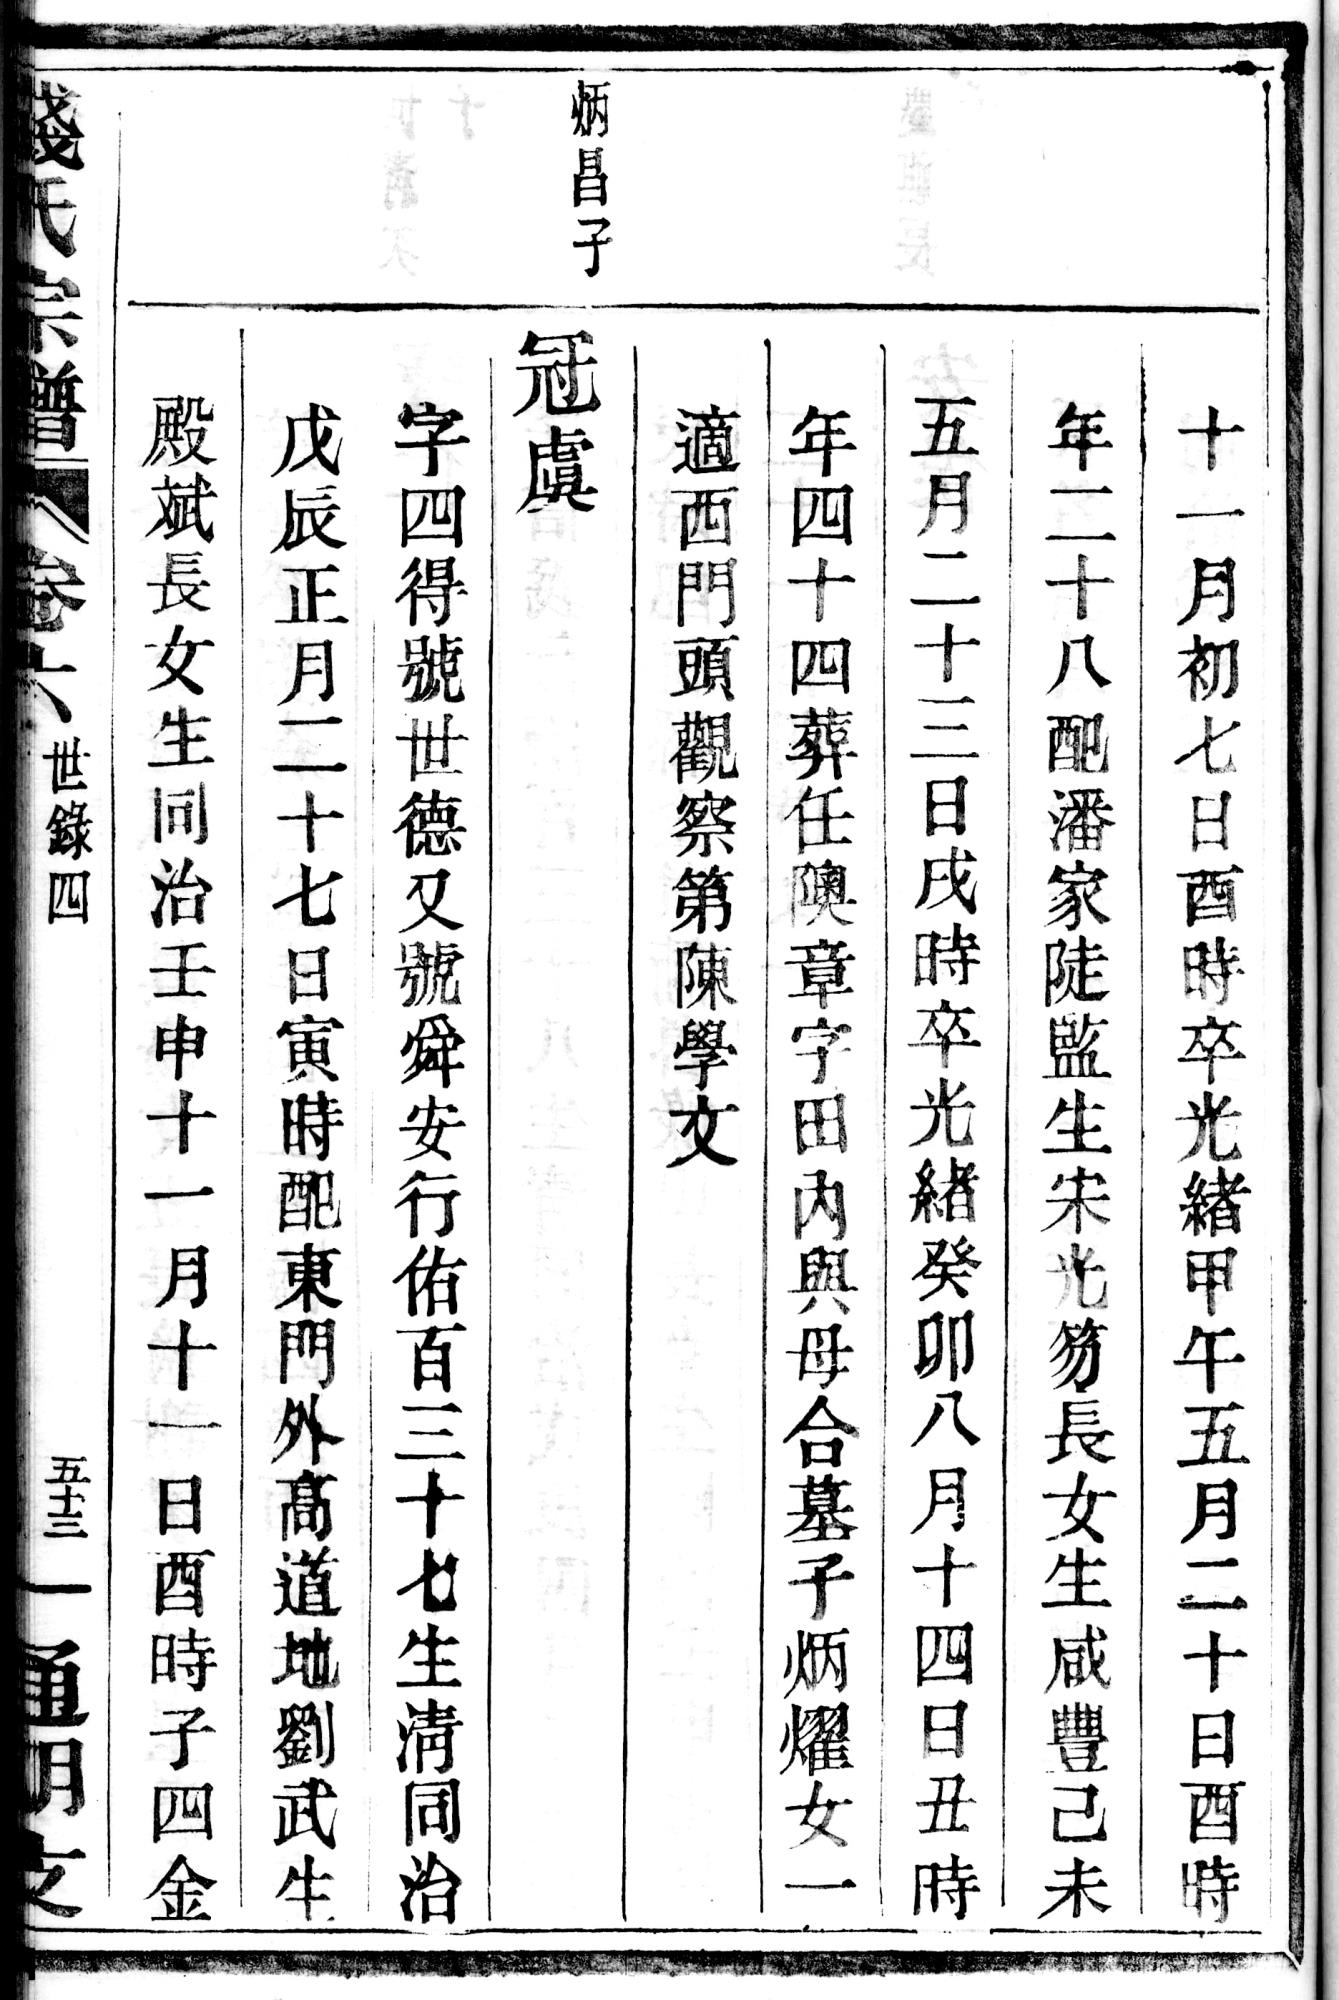 十一月初七日酉時卒光緒甲午五月二十日酉時
年三十八配潘家陡監生宋光笏長女生咸豐己未
五月二十三日戌時卒光緒癸卯八月十四日丑時
年四十四葬任隩章字田內與母合墓子炳燿女一
適西門頭觀察第陳學文
炳昌子
冠虞
字四得號世德又號舜安行佑百三十七生淸同治
戊辰正月二十七日寅時配東門外高道地劉武生
殿斌長女生同治壬申十一月十一日酉時子四金
錢氏宗譜
卷六
世錄四
五十三
通明支